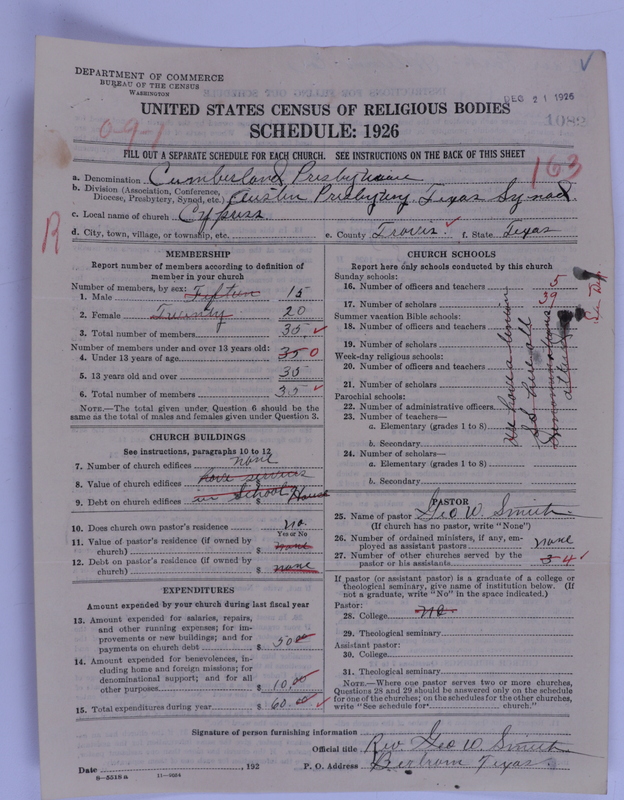 DEPARTMENT OF COMMERCE
BUREAU OF THE CENSUS
WASHINGTON
DEC 21 1926
UNITED STATES CENSUS OF RELIGIOUS BODIES
1082
SCHEDULE: 1926
0-9-7
FILL OUT A SEPARATE SCHEDULE FOR EACH CHURCH. SEE INSTRUCTIONS ON THE BACK OF THIS SHEET
163
a. Denomination Cumberland Presbyterian
b. Division (Association, Conference, Diocese, Presbytery, Synod, etc.) Austin Presbytery, Texas Synod
c. Local name of church Cypress
R
d. City, town, village, or township, etc. e. County Travis. f. State Texas
MEMBERSHIP
Report number of members according to definition of
member in your church
Number of members, by sex:
1. Male Fifteen 15
2. Female Twenty 20
3. Total number of members 35
Number of members under and over 13 years old:
4. Under 13 years of age 35 0
5. 13 years old and over 35
6. Total number of members 35
NOTE.—The total given under Question 6 should be
same as the total of males and females given under Question 3.
CHURCH BUILDINGS
See instructions, paragraphs 10 to 12
7. Number of church edifices none
8. Value of church edifices have services
9. Debt on church edifices in School House
10. Does church own pastor's residence no
Yes or No
11. Value of pastor's residence (if owned by
church) $ none
12. Debt on pastor's residence (if owned by
church) $ none
EXPENDITURES
Amount expended by your church during last fiscal year
13. Amount expended for salaries, repairs,
and other running expenses; for im-
provements or new buildings; and for
payments on church debt $ 50 00
14. Amount expended for benevolences, in-
cluding home and foreign missions; for
denominational support; and for all
other purposes $ 10.00
15. Total expenditures during year $ 60.00
CHURCH SCHOOLS
Report here only schools conducted by this church
Sunday schools:
16. Number of officers and teachers 5
17. Number of scholars 39
Summer vacation Bible schools:
18. Number of officers and teachers
19. Number of scholars
Week-day religious schools:
20. Number of officers and teachers
21. Number of scholars
Parochial schools:
22. Number of administrative officers
23. Number of teachers—
a. Elementary (grades 1 to 8)
b. Secondary
24. Number of scholars—
a. Elementary (grades 1 to 8)
b. Secondary
We have a Union
S S
PASTOR
25. Name of pastor Geo W. Smith
(If church has no pastor, write "None")
26. Number of ordained ministers, if any, em-
ployed as assistant pastors none
27. Number of other churches served by the
pastor or his assistants 3 4
If pastor (or assistant pastor) is a graduate of a college or
theological seminary, give name of institution below. (If
not a graduate, write "No" in the space indicated.)
Pastor:
28. College no
29. Theological seminary
Assistant pastor:
30. College
31. Theological seminary
NOTE.—Where one pastor serves two or more churches,
Questions 28 and 29 should be answered only on the schedule
for one of the churches; on the schedules for the other churches,
write "See schedule for church."
Signature of person furnishing information
Official title Rev Geo W. Smith
Date , 192 P. O. Address Bertram Texas.
8-5518a 11-9264